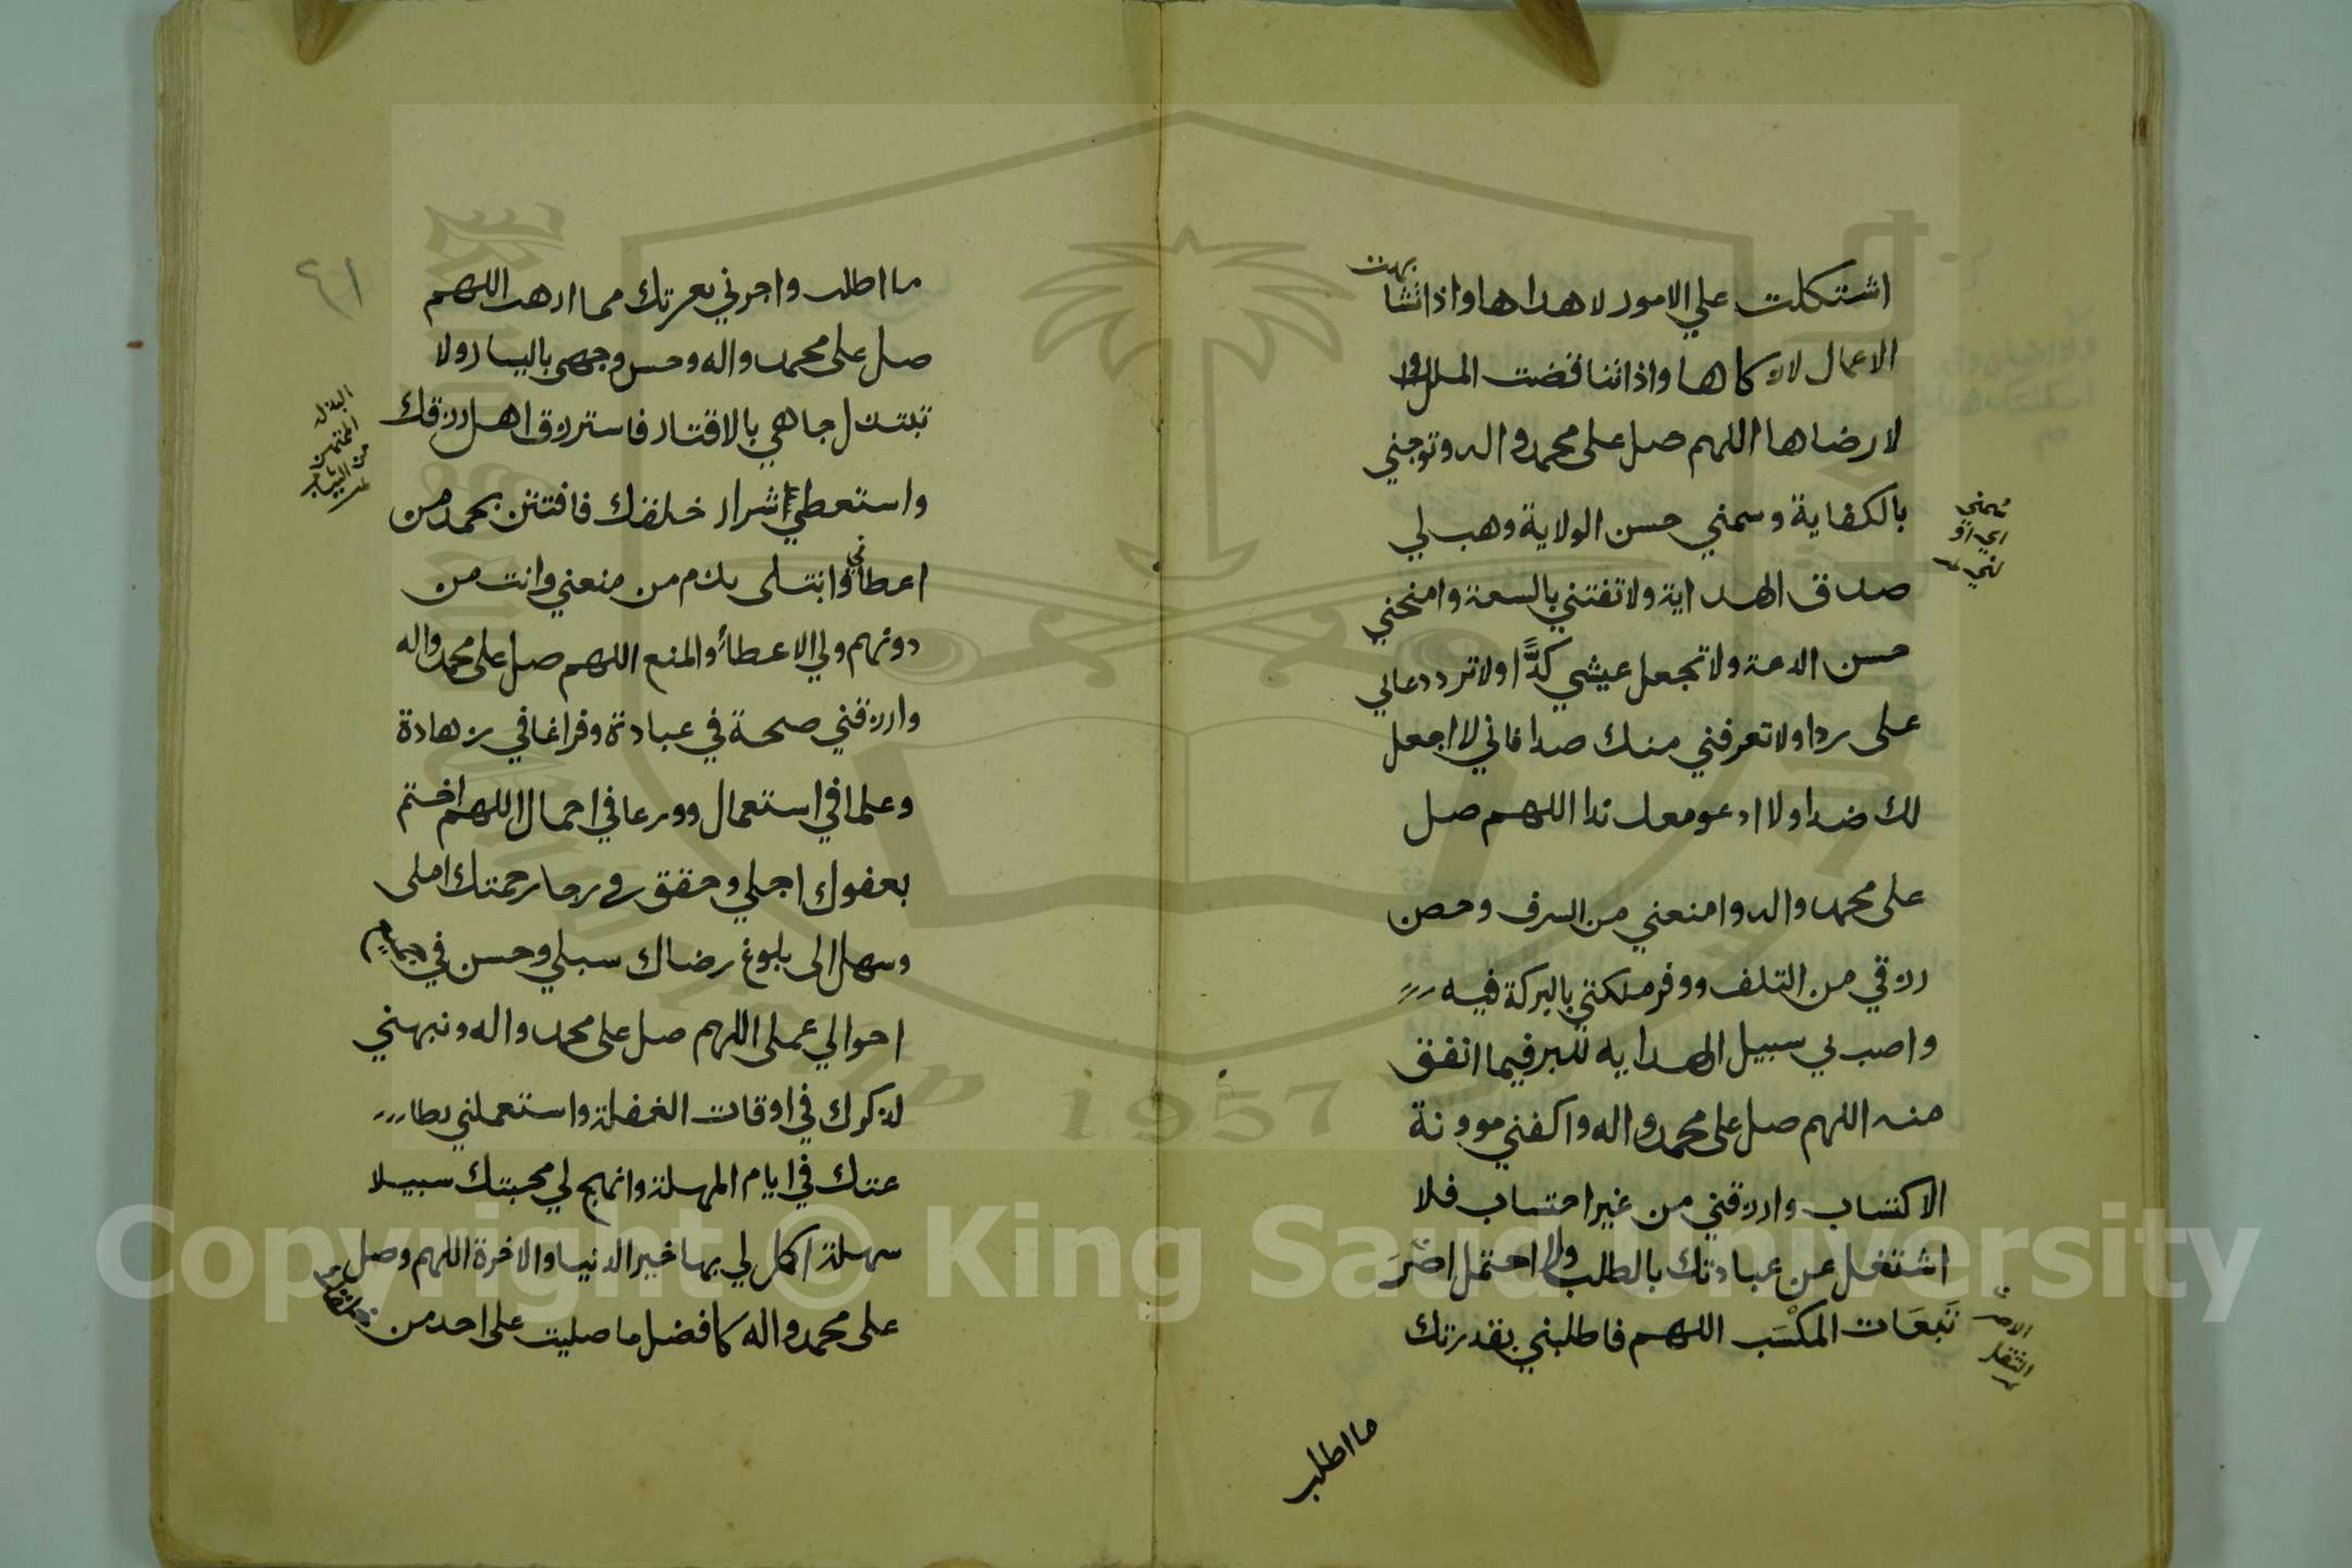 اشتكلت علي الامور لاهداها واذا تشا
بهت
الاعمال لازكاها واذا تناقضت الملل
لارضاها اللهم صل على محمد واله وتوجني
بالكفاية وسمني حسن الولاية وهب لي
صدق الهداية ولا تفتني بالسعة وامنحني
حسن الدعة ولا تجعل عيشي كدًّا ولا ترد دعائي
على ردا ولا تعرفني منك صدا فاني لا اجعل
لك ضدا ولا ادعو معك ندا اللهم صل
على محمد واله وامنعني من السرف وحصن
رزقي من التلف ووفر ملكتي بالبركة فيه
واصب بي سبيل الهداية للبر فيما انفق
منه اللهم صل على محمد واله واكفني موونة
الاكتساب وارزقني من غير احتساب فلا
اشتغل عن عبادتك بالطلب ولا احتمل اصْرَ
تَبَعَات المكْسَب اللهم فاطلبني بقدرتك
ما اطلب
اي او
الاصر
الثقل
ما اطلب واجرني بعزتك مما ارهب اللهم
صل على محمد واله وحسن وجهي باليسار ولا
تبتذل جاهي بالاقتار فاسترزق اهل رزقك
واستعطي اشرار خلقك فافتتن بحمد من
اعطاني وابتلى بذم من منعني وانت من
دونهم ولي الاعطاء والمنع اللهم صل على محمد واله
وارزقني صحة في عبادة وفراغا في زهادة
وعلما في استعمال وورعا في اجمال اللهم اختم
بعفوك اجلي وحقق في رجا رحمتك املى
وسهل الى بلوغ رضاك سبلي وحسن في جميع
احوالي عملى اللهم صل على محمد واله ونبهني
لذكرك في اوقات الغفلة واستعملني بطا
عتك في ايام المهلة وانهج لي محبتك سبيلا
سهلة اكمل لي بها خير الدنيا والاخرة اللهم وصل
على محمد واله كافضل ما صليت على احد من
خلقك
٢١
من الثياب